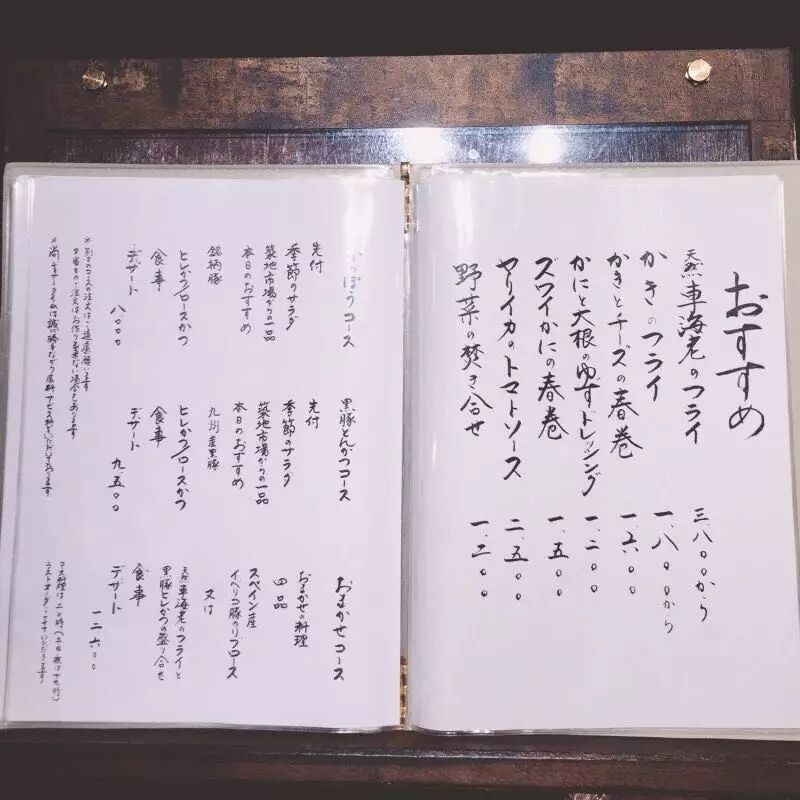 おすすめ
天然車海老のフライ 三、八〇〇から
かきのフライ 一、八〇〇から
かきとチーズの春巻 一、六〇〇
かにと大根のゆずドレッシング 一、二〇〇
ズワイかにの春巻 一、五〇〇
ヤリイカのトマトソース 二、五〇〇
野菜の焚き合せ 一、二〇〇
かっぽうコース
先付
季節のサラダ
築地市場からの一品
本日のおすすめ
銘柄豚
ヒレかつ/ロースかつ
食事
デザート
八〇〇〇
黒豚とんかつコース
先付
季節のサラダ
築地市場からの一品
本日のおすすめ
九州産黒豚
ヒレかつ/ロースかつ
食事
デザート
九、五〇〇
おまかせコース
おまかせの料理
四品
スペイン産
イベリコ豚のリブロース
又は
天然車海老のフライと
黒豚ヒレかつの盛り合せ
食事
デザート
一二、六〇〇
※別々のコースの注文はご遠慮願います
又当日のご注文はお作り出来ない場合もあります
※尚、ディナータイムは誠に勝手ながら席料サービス料をいただいております
コース料理は二〇時(土日・祝は十九時)
ラストオーダーとさせていただきます